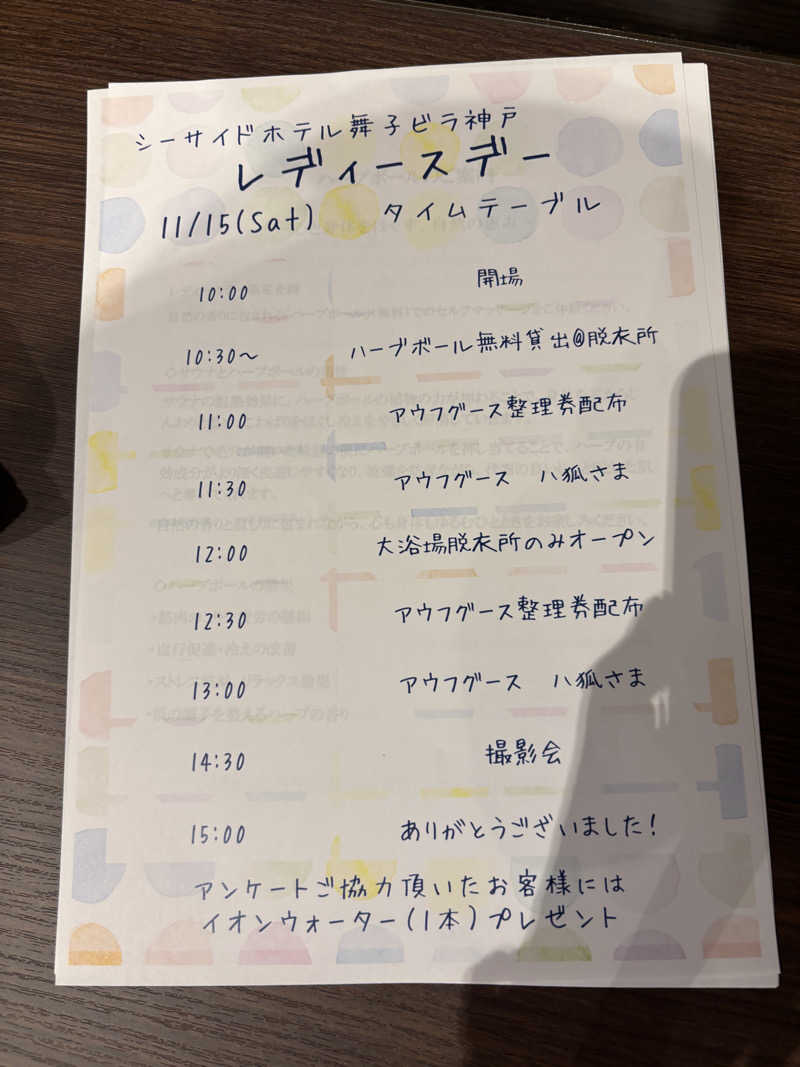 シーサイドホテル舞子ビラ神戸
レディースデー
11/15(Sat) タイムテーブル
10:00 開場
10:30～ ハーブボール無料貸出@脱衣所
11:00 アウフグース整理券配布
11:30 アウフグース 八狐さま
12:00 大浴場脱衣所のみオープン
12:30 アウフグース整理券配布
13:00 アウフグース 八狐さま
14:30 撮影会
15:00 ありがとうございました!
アンケートご協力頂いたお客様には
イオンウォーター(1本)プレゼント